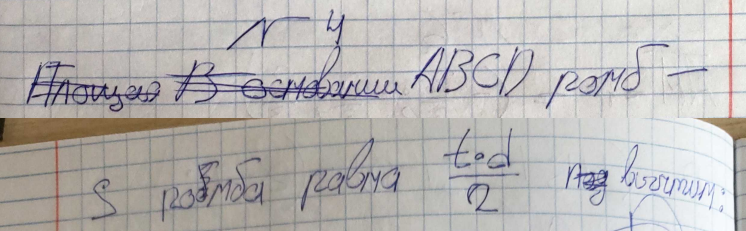 № 4
Площадь В основании ABCD ромб —
S ромба равна t·d/2 вычтим: